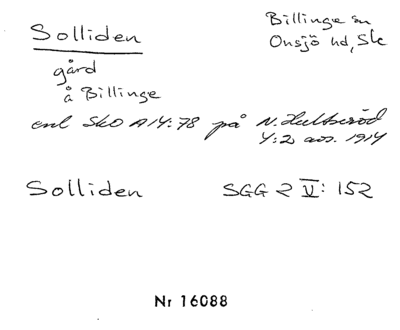 Solliden
Billinge sn
Onsjö hd, Sk
gård
å Billinge
enl Sko A14:78 på N. Hultseröd
4:2 avs. 1914
Solliden SGG 2 V: 152
Nr 16088